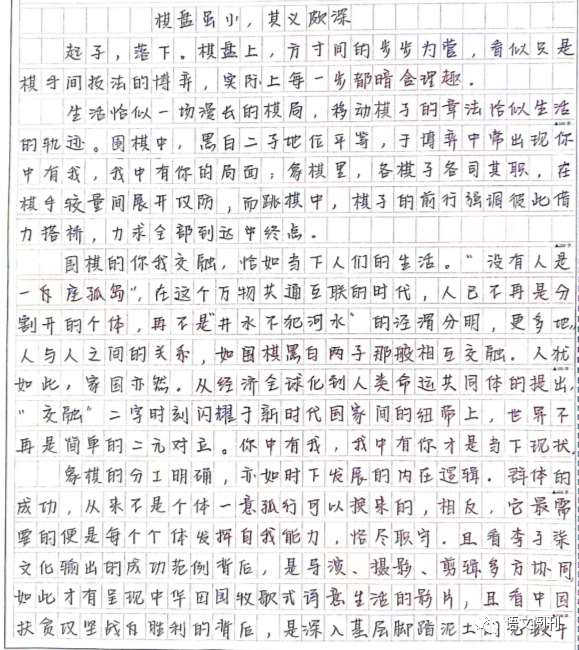 棋盘虽小，其义颇深
起子，落下。棋盘上，方寸间的步步为营，看似只是
棋手间技法的博弈，实际上每一步都暗含理趣．
生活恰似一场漫长的棋局，移动棋子的章法恰似生活
的轨迹。围棋中，黑白二子地位平等，于博弈中常出现你
中有我，我中有你的局面；象棋里，各棋子各司其职，在
棋手较量间展开攻防，而跳棋中，棋子的前行强调彼此借
力搭桥，力求全部到达中终点．
围棋的你我交融，恰如当下人们的生活。“没有人是
一座孤岛”，在这个万物共通互联的时代，人已不再是分
割开的个体，再不是“井水不犯河水”的泾渭分明，更多地，
人与人之间的关系，如围棋黑白两子那般相互交融．人犹
如此，家国亦然．从经济全球化到人类命运共同体的提出，
“交融”二字时刻闪耀于新时代国家间的纽带上，世界不
再是简单的二元对立。你中有我，我中有你才是当下现状．
象棋的分工明确，亦如时下发展的内在逻辑．群体的
成功，从来不是个体一意孤行可以换来的，相反，它最需
要的便是每个个体发挥自我能力，恪尽职守．且看李子柒
文化输出的成功范例背后，是导演、摄影、剪辑多方协同，
如此才有呈现中华田园牧歌式诗意生活的影片，且看中国
扶贫攻坚战役胜利的背后，是深入基层脚踏泥土的
语文周刊